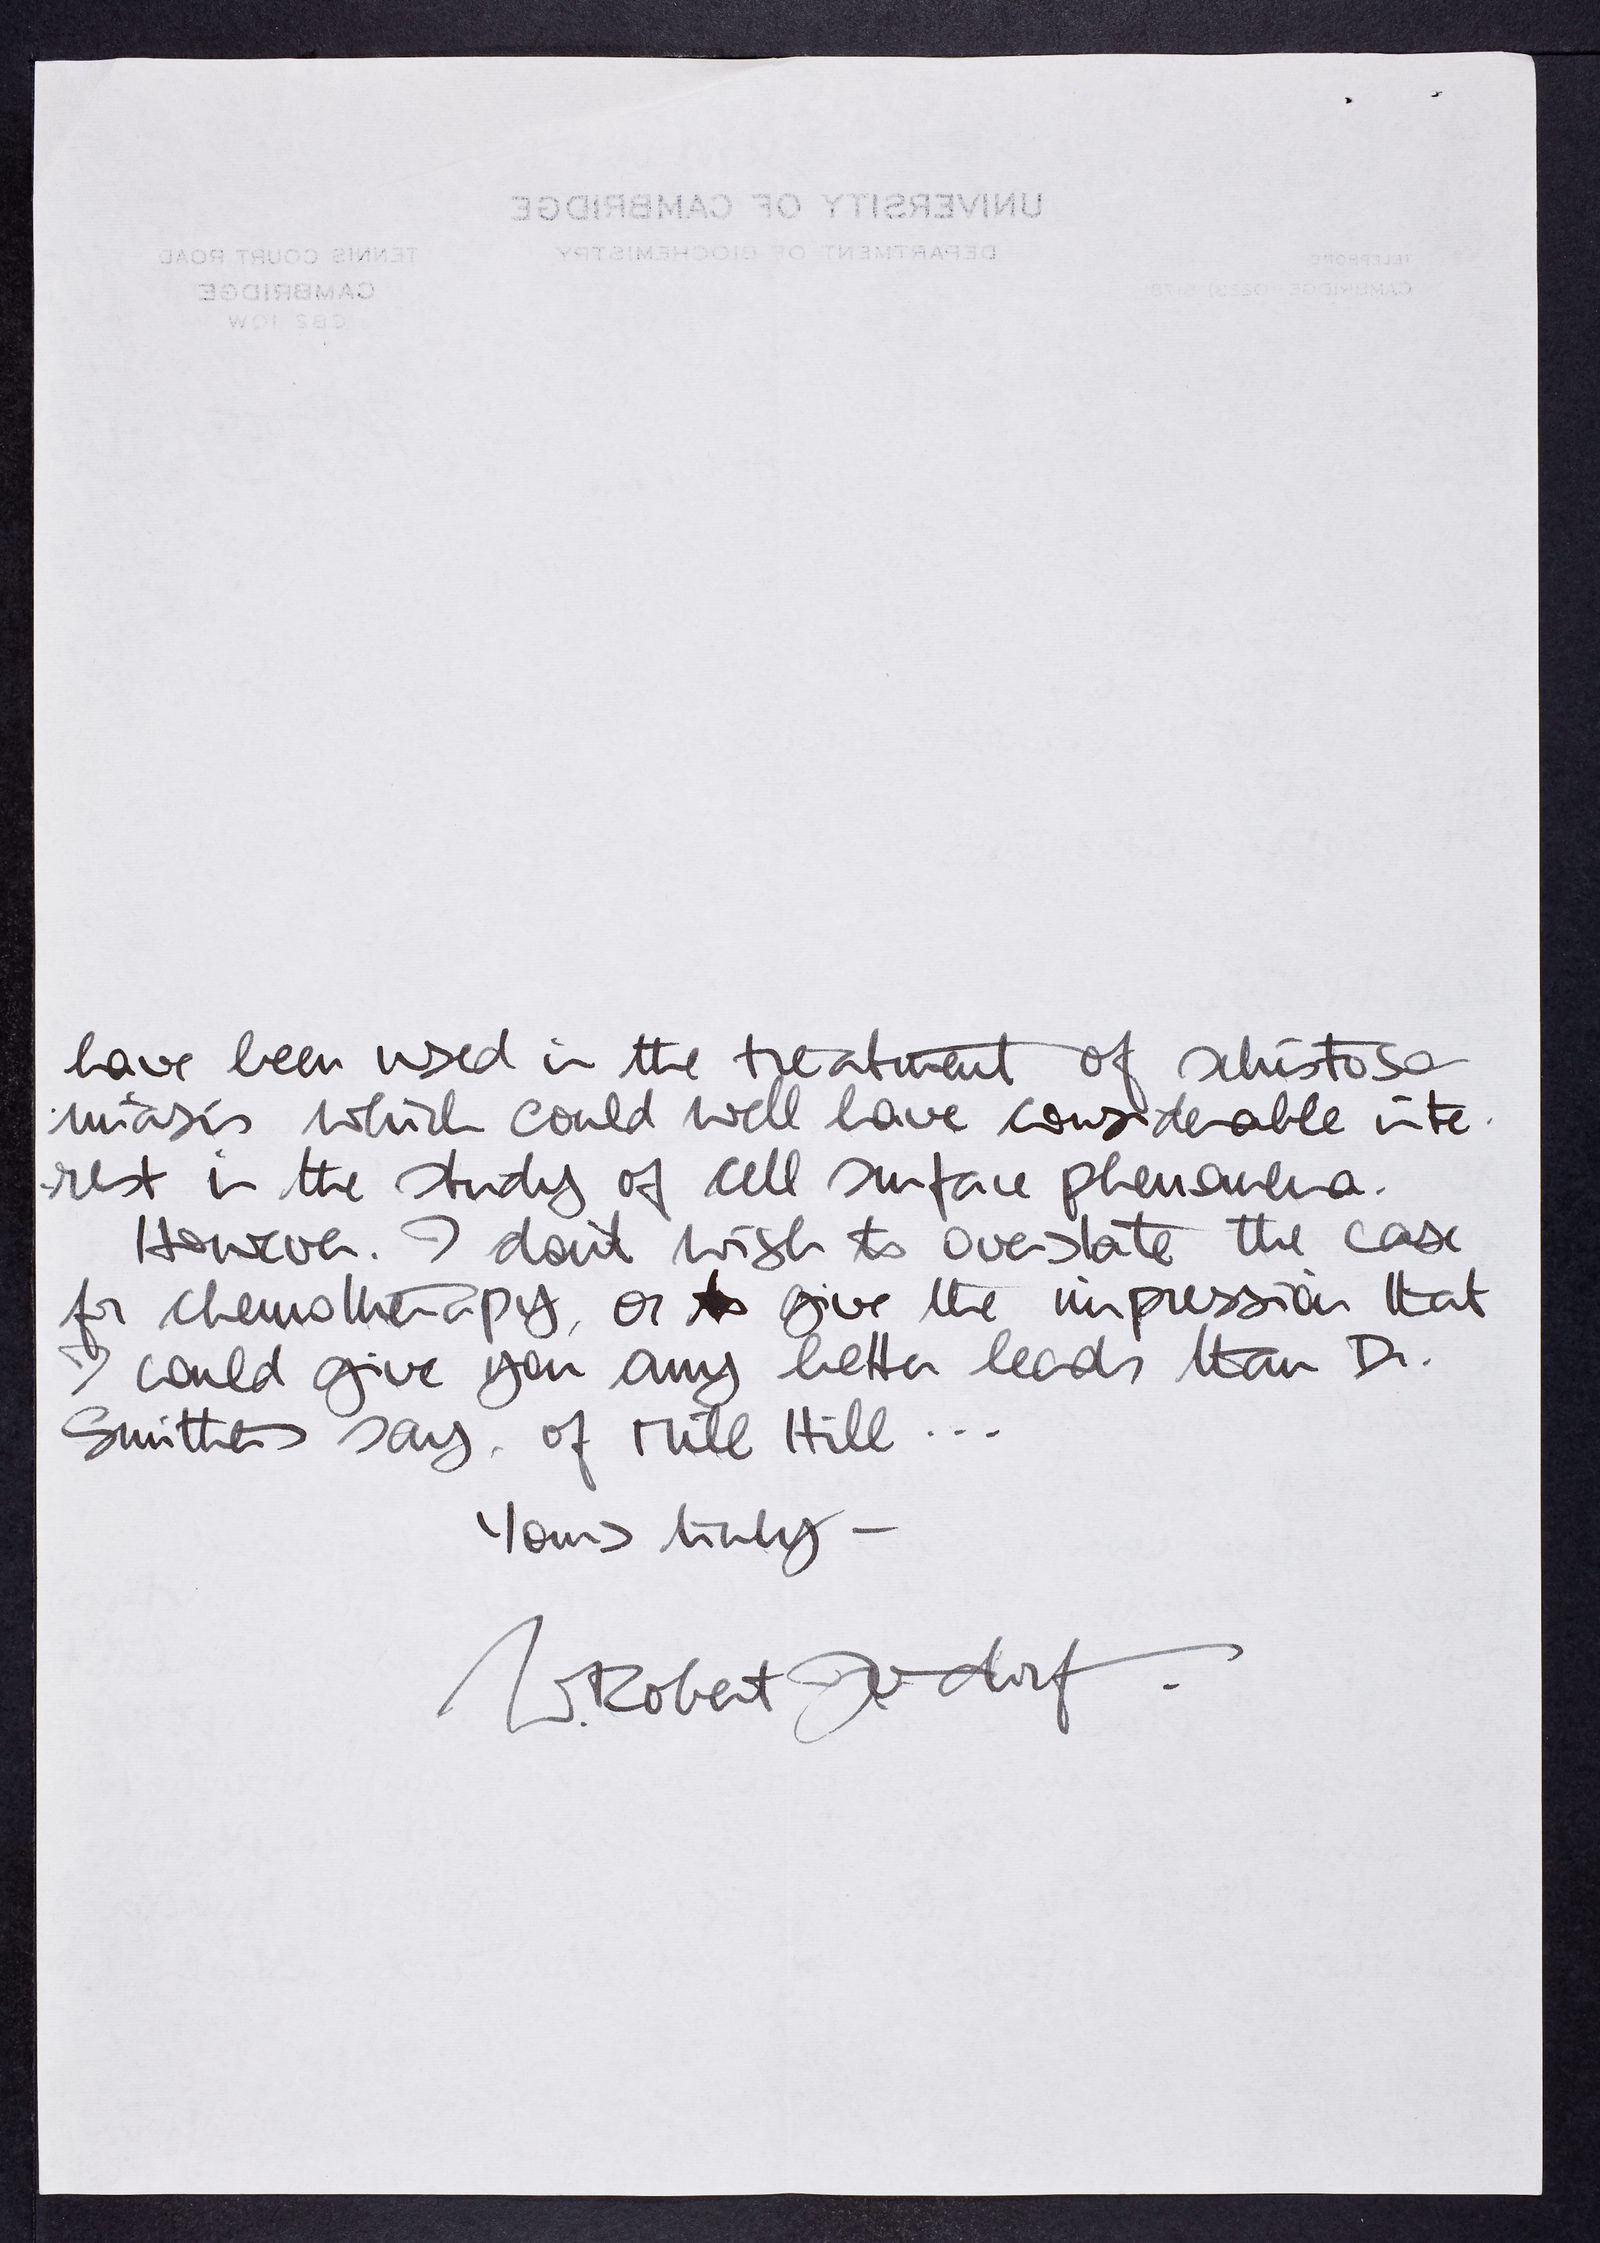 UNIVERSITY OF CAMBRIDGE
DEPARTMENT OF BIOCHEMISTRY
TENNIS COURT ROAD
CAMBRIDGE
CB2 1QW
TELEPHONE
CAMBRIDGE (0223)
have been used in the treatment of schistoso
miasis which could well have considerable inte-
-rest in the study of cell surface phenomena.
However. I don't wish to overstate the case
for chemotherapy, or to give the impression that
I could give you any better leads than Dr.
Smithers say, of Mill Hill ...
Yours truly —
W. Robert